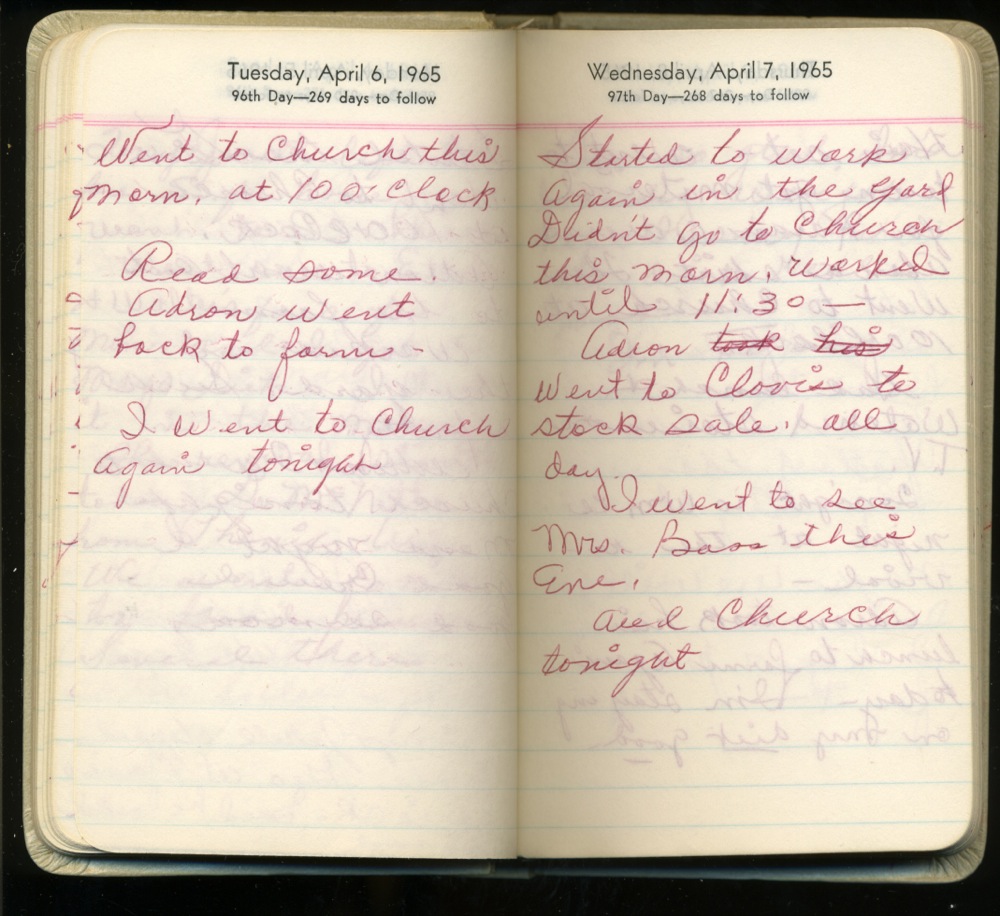 Tuesday, April 6, 1965
96th Day—269 days to follow
Went to Church this
morn. at 10 O'Clock
Read some.
Adron went
back to farm -
I Went to Church
Again tonight
Wednesday, April 7, 1965
97th Day—268 days to follow
Started to work
Again in the Yard
Didn't go to Church
this morn. Worked
until 11:30 —
Adron took his
Went to Clovis to
stock sale. all
day.
I went to see
Mrs. Bass this
Eve.
and Church
tonight